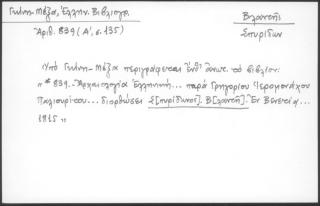 Γκίνη-Μέξα, Ἑλλην. Βιβλιογρ.
Ἀριθ. 839 (Α', σ. 135)
Βλαντῆς
Σπυρίδων
Ὑπὸ Γκίνη-Μέξα περιγράφεται ἐνθ' ἀνωτ. τὸ βιβλίον:
"* 839. - Ἀρχαιολογία Ἑλληνική... παρὰ Γρηγορίου Ἱερομονάχου
Παλιουρίτου... διορθώσει Σ[πυρίδωνος]. Β[λαντῆ]. Ἐν Βενετίᾳ...
1815 "